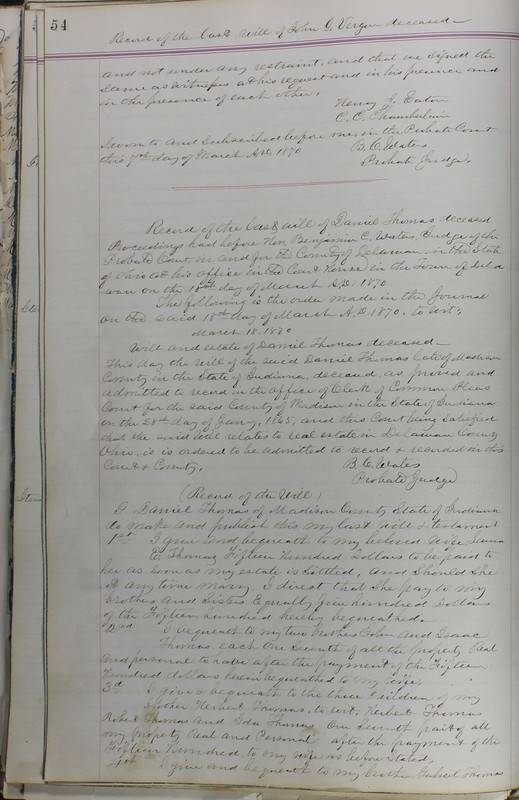 54
Record of the Last Will of John G. Vergin deceased
and not under any restraint, and that we signed the
same as witnesses at his request and in his presence and
in the presence of each other.
Henry J. Eaton
C. C. Chamberlain
Sworn to and Subscribed before me, in the Probate Court
this 7th day of March A.D. 1870
B. C. Waters
Probate Judge.
Record of the last will of Daniel Thomas deceased
Proceedings had before Hon Benjamin C. Waters, Judge of the
Probate Court, in and for the County of Delaware in the State
of Ohio at his office in the Court House in the Town of Dela
ware on the 18th day of March A.D. 1870
The following is the order made in the Journal
on the said 18th day of March A.D. 1870. to wit:
March 18. 1870
Will and estate of Daniel Thomas deceased
This day the will of the said Daniel Thomas late of Madison
County in the State of Indiana, deceased, as proved and
admitted to record in the office of Clerk of Common Pleas
Court for the said County of Madison in the State of Indiana
on the 28th day of Jany, 1865, and this Court being satisfied
that the said will relates to real estate in Delaware County
Ohio, is is ordered to be admitted to record & recorded in this
Court & County.
B. C. Waters
Probate Judge
(Record of the Will)
I Daniel Thomas of Madison County State of Indiana
do make and publish this my last will & testament
1st I give and bequeath to my beloved wife
E. Thomas Fifteen Hundred Dollars to be paid to
her as soon as my estate is Settled, and Should She
at any time marry, I direct that She pay to my
brothers and Sisters Equally five hundred Dollars
of the Fifteen hundred hereby bequeathed.
2nd I bequeath to my two brothers John and Isaac
Thomas, each One Seventh of all the property Real
and personal to have after the payment of the Fifteen
Hundred dollars herein bequeathed to my wife.
3d I give & bequeath to the three Children of my
brother Herbert Thomas, to wit, Herbert Thomas
Robert Thomas and Ida Thomas One Seventh part of all
my property Real and Personal after the payment of the
Fifteen Hundred, to my wife as before stated,
4th I give and bequeath to my brother Thomas